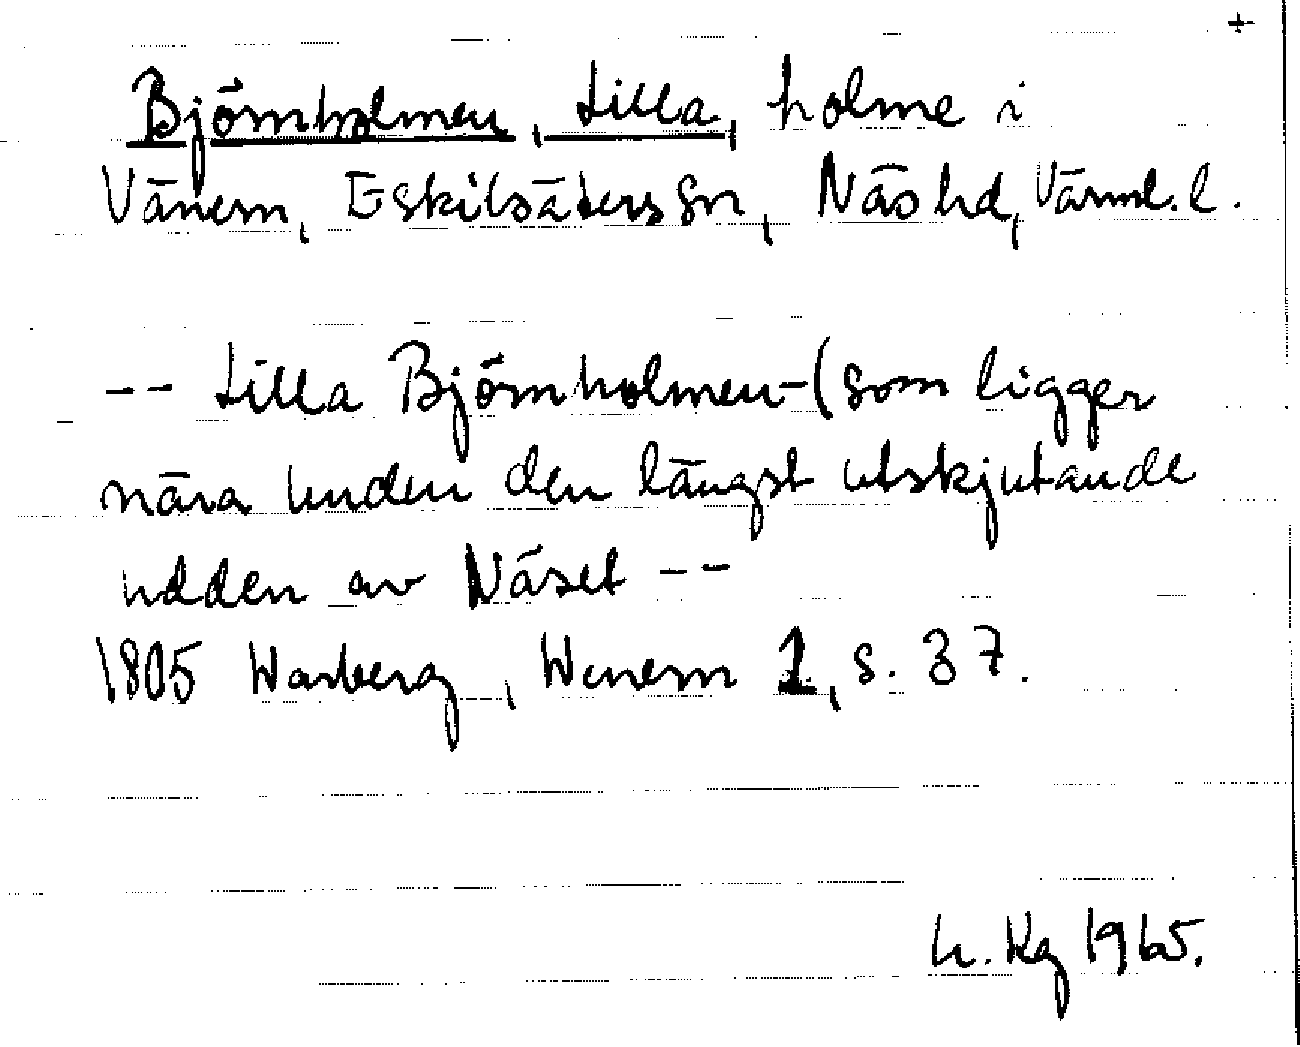 +
Björnholmen, Lilla, holme i
Vänern, Eskilsäters sn, Näs hd, Värml. l.
-- Lilla Björnholmen - (som ligger
nära under den längst utskjutande
udden av Näset --
1805 Warberg, Wenern 1, s. 37.
h. Kg 1965.